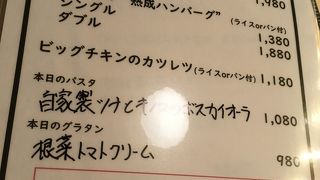 1,980
シングル "熟成ハンバーグ"
(ライスorパン付)
1,380
ダブル
1,880
ビッグチキンのカツレツ(ライスorパン付) 1,180
本日のパスタ
自家製ツナとキノコのボスカイオーラ 1,080
本日のグラタン
根菜トマトクリーム 980